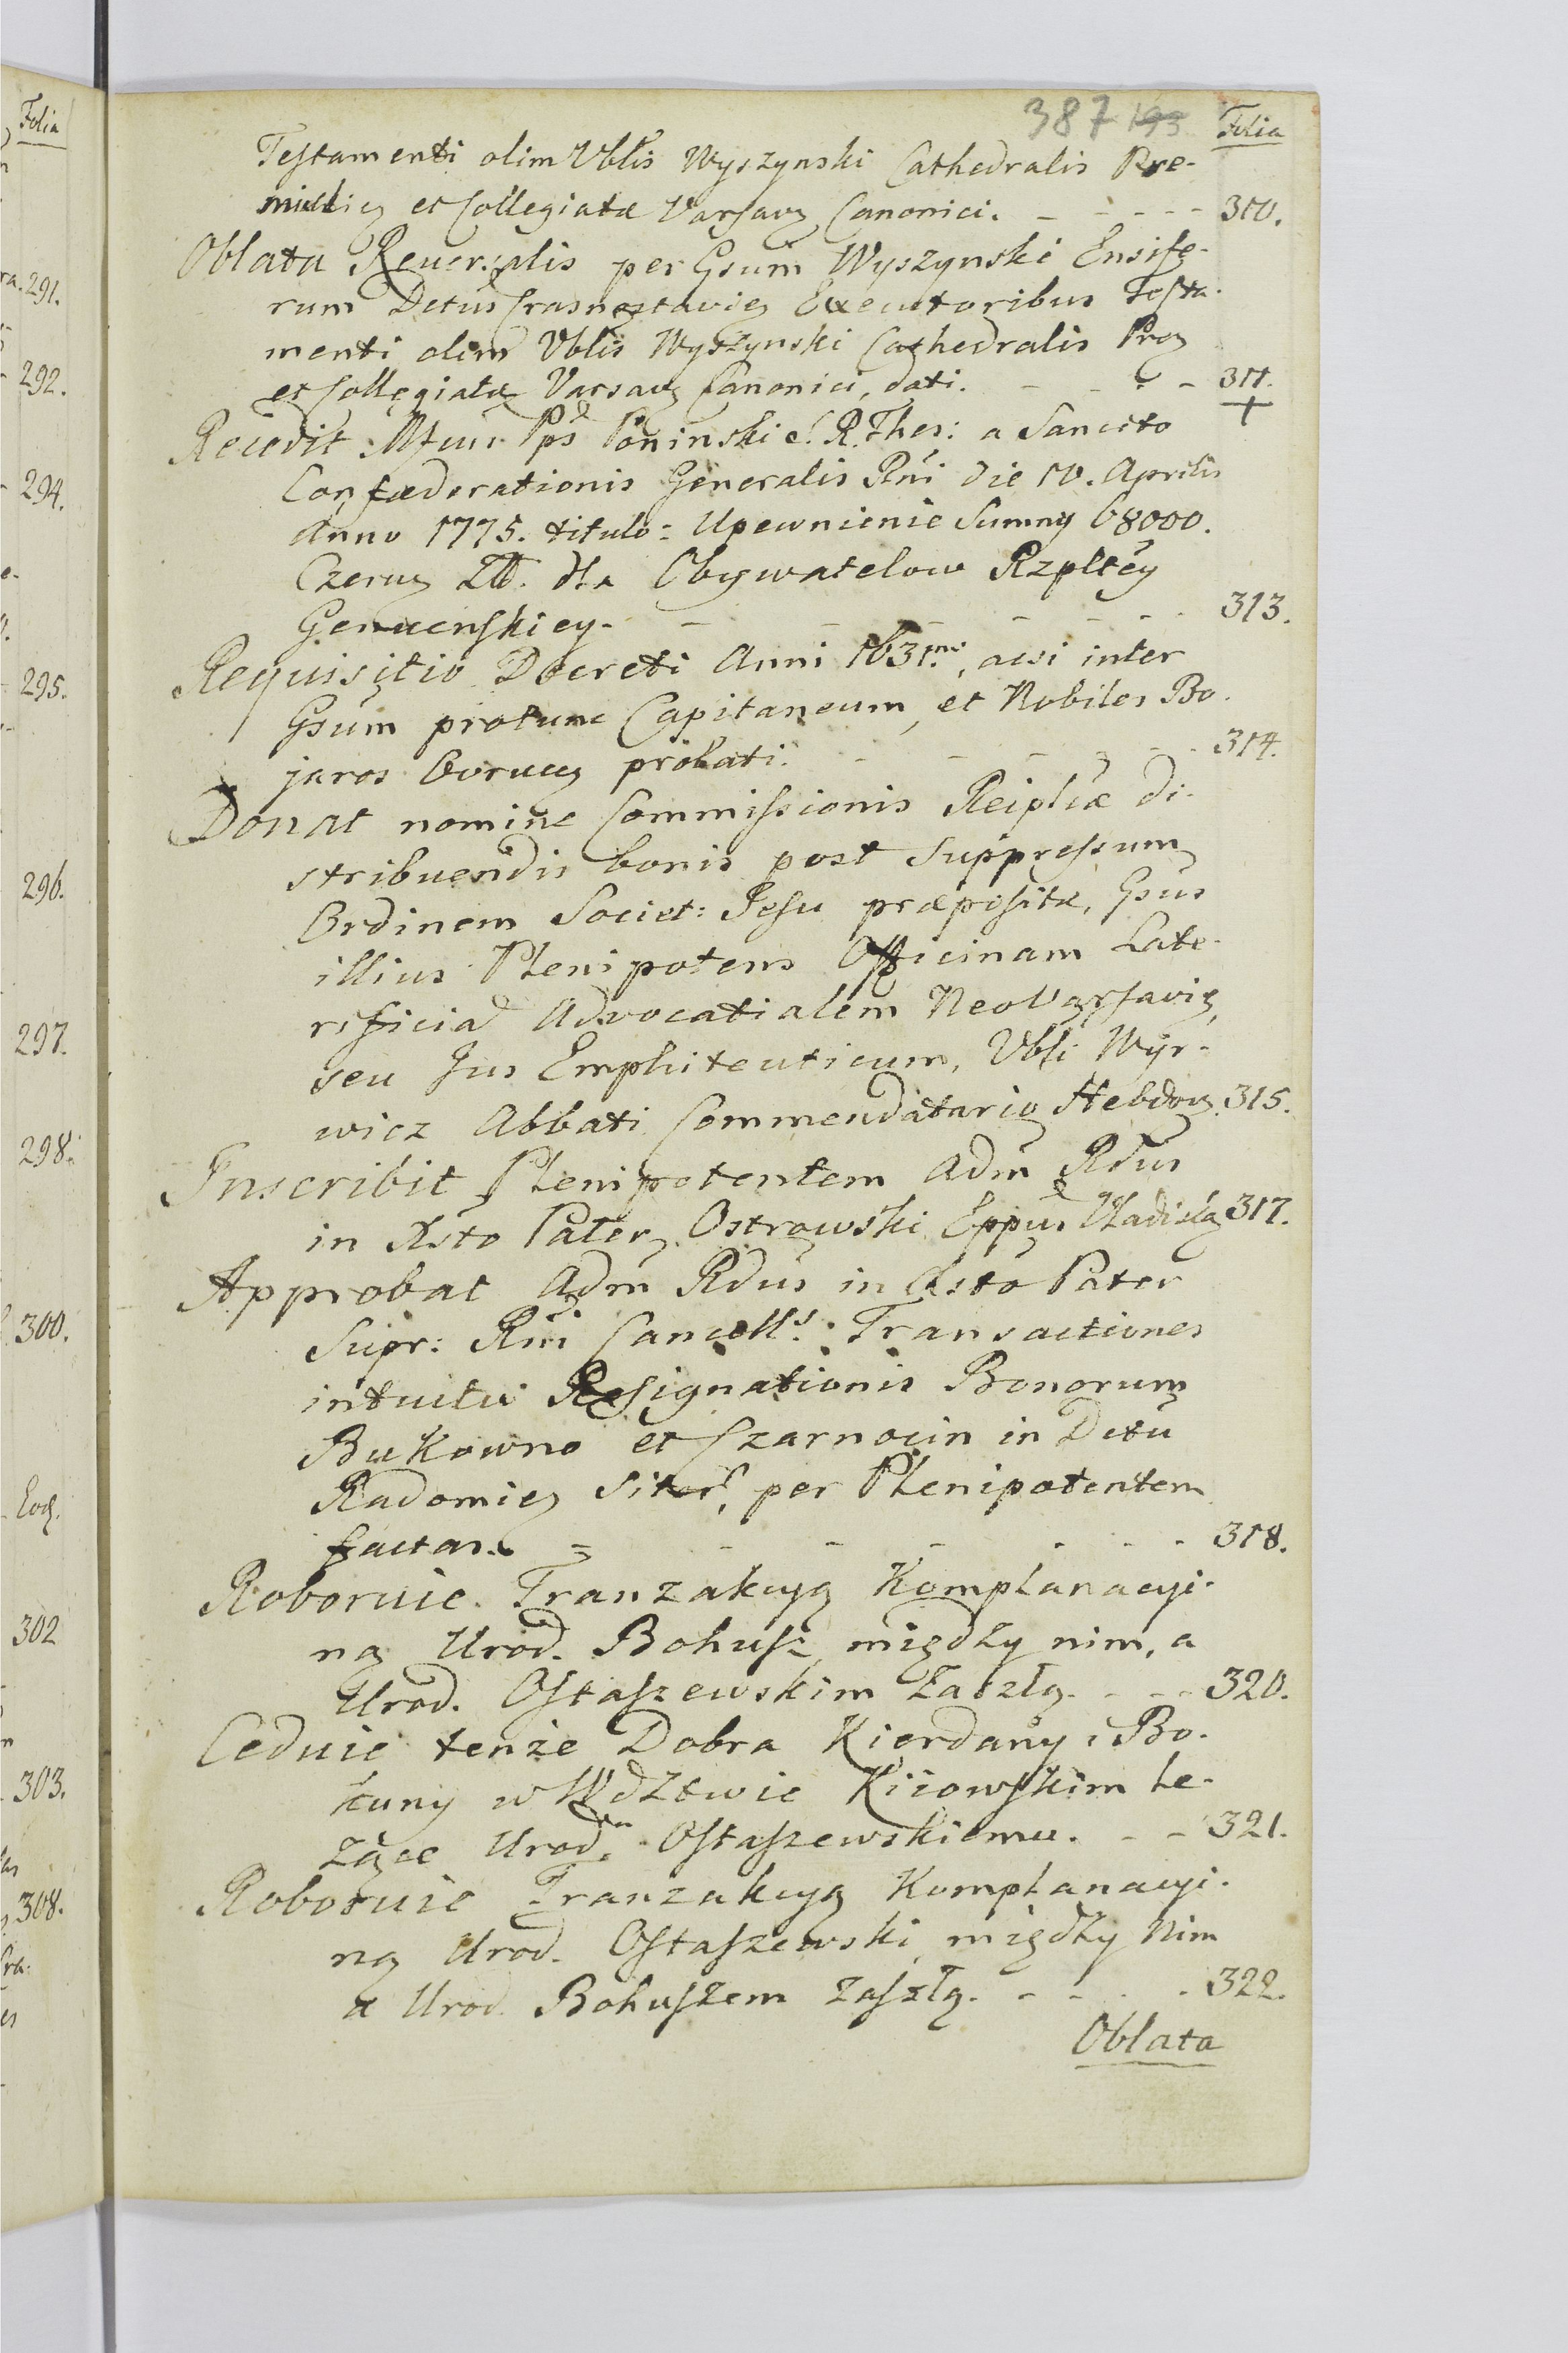 387 193 Folia
Testamenti olim Vblis Wyszynski Cathedralis Pre-
mislię et Collegiatæ Varsavę Canonici. - - - - - 310.
Oblata Reversalis per Gsum Wyszynski Ensife-
rum Dctus Crasnostavię Executoribus Testa-
menti olim Vblis Wyszynski Cathedralis Prę
et Collegiatæ Varsavę Canonici, dati. - - - - 311.
Recedit Mfcus Ps Poninski S. R. Thes: a Sancito
Confæderationis Generalis Rni die 10. Aprilis
Anno 1775. titulo: Upewnienie Summy 68000.
Czerwę Złł. dla Obywatelow Rzpltey
Genuenskiey. - - - - - - 313.
Requisitio Decreti Anni 1631mi, acsi inter
Gsum protunc Capitaneum, et Nobiles Bo-
jaros probati. - - - - - 314.
Donat nomine Commissionis Reiplcæ di-
stribuendis bonis post Suppressum
Ordinem Societ: Jesu præpositæ, Gsus
illius Plenipotens Officinam Late-
rificia Advocatialem NeoVarsavię,
seu Jus Emphiteuticum, Vbli Wyr-
wicz Abbati Commendatario Hebdow. 315.
Inscribit Plenipotentem Adm Rdus
in Xsto Pater Ostrowski Eppus Vladislę 317.
Approbat Adm Rdus in Xsto Pater
Supr: Rni Cancells: Transactiones
intuitu Resignationis Bonorum
Bukowno et Czarnocin in Dctu
Radomię Siter, per Plenipotentem
factas. - - - - - - - 318.
Roboruie Tranzakcyą Komplanacyi-
ną Urod. Bohusz między nim, a
Urod. Ostaszewskim Zaszłą. - - - 320.
Ceduie tenże Dobra Kierdany i Bo-
łuny w Wdztwie Kiiowskim le-
żące Urod. Ostaszewskiemu. - - 321.
Roboruie Tranzakcyą Komplanacyi-
ną Urod. Ostaszewski między Nim
a Urod. Bohuszem Zaszłą. - - - - 322.
Oblata
Folia
291.
292.
294.
295.
296.
297.
298.
300.
Eod.
302
303.
308.